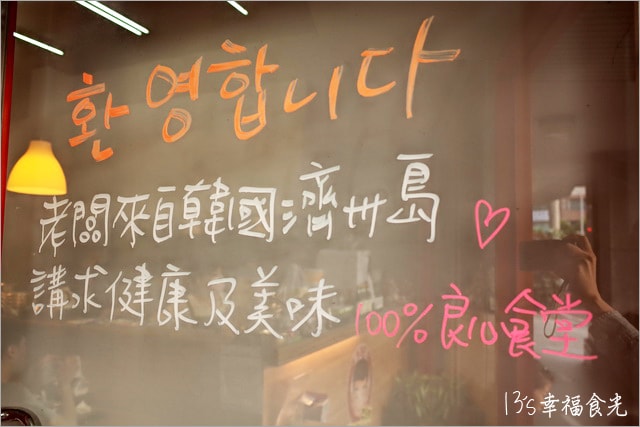 환영합니다
老闆來自韓國濟州島
講求健康及美味
100%良心食堂
13's幸福食光